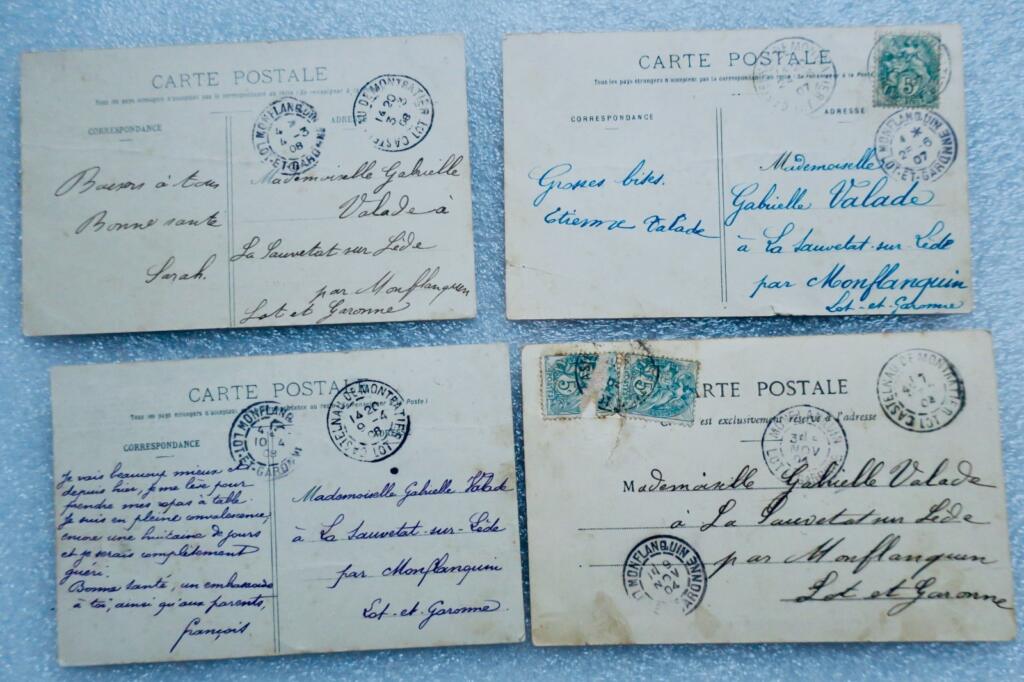 CARTE POSTALE
Tous les pays étrangers n'acceptent pas la correspondance au recto
CORRESPONDANCE
MONFLANQUIN
4 -3
08
LOT-ET-GARONNE
CASTELNAU DE MONTRATIER LOT
14 20
3 -3
08
Baisers à tous
Bonne santé
Sarah.
Mademoiselle Gabrielle
Valade à
La Sauvetat sur Lède
par Monflanquin
Lot et Garonne
CARTE POSTALE
Tous les pays étrangers n'acceptent pas la correspondance au recto (Se renseigner à la Poste)
CORRESPONDANCE
ADRESSE
5
MONFLANQUIN
07
LOT-ET-GARONNE
Grosses bises.
Etienne Valade
Mademoiselle
Gabrielle Valade
à La Sauvetat sur Lède
par Monflanquin
Lot-et-Garonne
CARTE POSTALE
CORRESPONDANCE
MONFLANQUIN
10 4
08
LOT-ET-GARONNE
CASTELNAU DE MONTRATIER LOT
14 20
9 -4
08
Je vais beaucoup mieux et
depuis hier, je me lève pour
prendre mes repas à table.
Je suis en pleine convalescence,
encore une huitaine de jours
et je serais complètement
guéri.
Bonne santé, un embrassade
à toi, ainsi qu'aux parents,
françois
Mademoiselle Gabrielle Valade
à La Sauvetat-sur-Lède
par Monflanquin
Lot-et-Garonne
5
5
CARTE POSTALE
est exclusivement réservé à l'adresse
CASTELNAU DE MONTRATIER LOT
04
MONFLANQUIN
NOV
Mademoiselle Gabielle Valade
à La Sauvetat sur Lède
par Monflanquin
Lot et Garonne
MONFLANQUIN
04
GARONNE